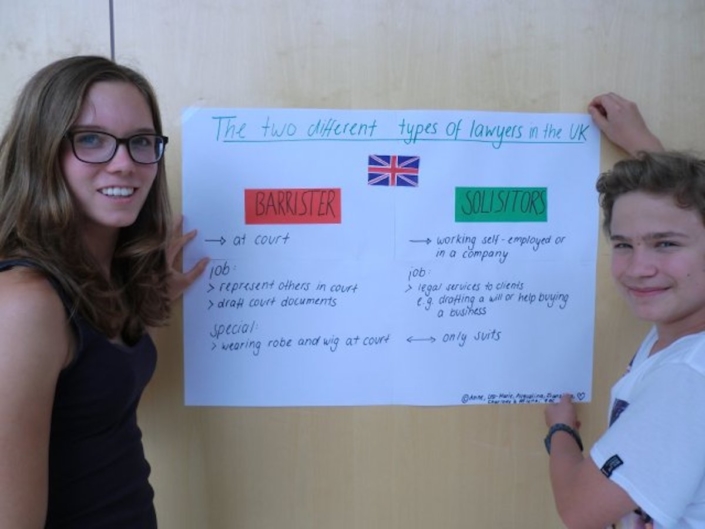 The two different types of lawyers in the UK
BARRISTER
SOLISITORS
→ at court
→ working self-employed or
in a company
job:
> represent others in court
> draft court documents
job:
> legal services to clients
e.g. drafting a will or help buying
a business
special:
> wearing robe and wig at court ↔ only suits
© Anne,